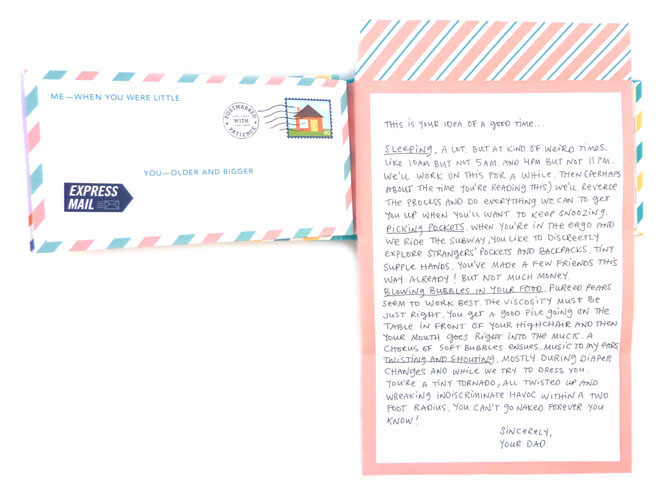 ME—WHEN YOU WERE LITTLE
POSTMARKED
WITH
PATIENCE
YOU—OLDER AND BIGGER
EXPRESS
MAIL
THIS IS YOUR IDEA OF A GOOD TIME...
SLEEPING. A LOT. BUT AT KIND OF WEIRD TIMES.
LIKE 10AM BUT NOT 5AM. AND 4PM BUT NOT 11PM.
WE'LL WORK ON THIS FOR A WHILE. THEN (PERHAPS
ABOUT THE TIME YOU'RE READING THIS) WE'LL REVERSE
THE PROCESS AND DO EVERYTHING WE CAN TO GET
YOU UP WHEN YOU'LL WANT TO KEEP SNOOZING.
PICKING POCKETS. WHEN YOU'RE IN THE ERGO AND
WE RIDE THE SUBWAY, YOU LIKE TO DISCREETLY
EXPLORE STRANGERS' POCKETS AND BACKPACKS. TINY
SUPPLE HANDS. YOU'VE MADE A FEW FRIENDS THIS
WAY ALREADY! BUT NOT MUCH MONEY.
BLOWING BUBBLES IN YOUR FOOD. PUREED PEARS
SEEM TO WORK BEST. THE VISCOSITY MUST BE
JUST RIGHT. YOU GET A GOOD PILE GOING ON THE
TABLE IN FRONT OF YOUR HIGHCHAIR AND THEN
YOUR MOUTH GOES RIGHT INTO THE MUCK. A
CHORUS OF SOFT BUBBLES ENSUES. MUSIC TO MY EARS.
TWISTING AND SHOUTING. MOSTLY DURING DIAPER
CHANGES AND WHILE WE TRY TO DRESS YOU.
YOU'RE A TINY TORNADO, ALL TWISTED UP AND
WREAKING INDISCRIMINATE HAVOC WITHIN A TWO
FOOT RADIUS. YOU CAN'T GO NAKED FOREVER YOU
KNOW!
SINCERELY,
YOUR DAD